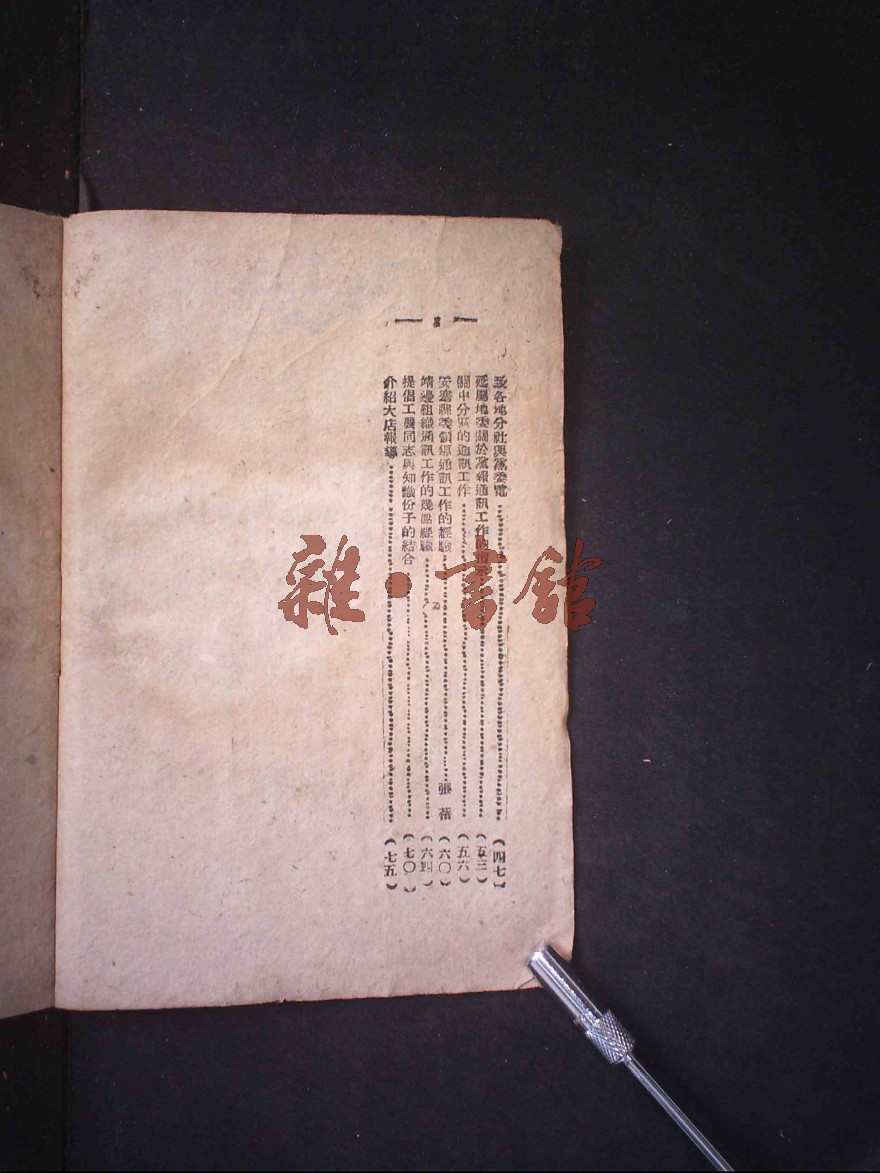 — 2 —
致各地分社與黨委電……（四七）
延屬地委關於黨報通訊工作的指示……（五三）
關中分區的通訊工作……（五六）
安塞縣委領導通訊工作的經驗……張蓓（六〇）
靖邊組織通訊工作的幾點經驗……（六四）
提倡工農同志與知識份子的結合……（七〇）
介紹大店報導……（七五）
雜·書館